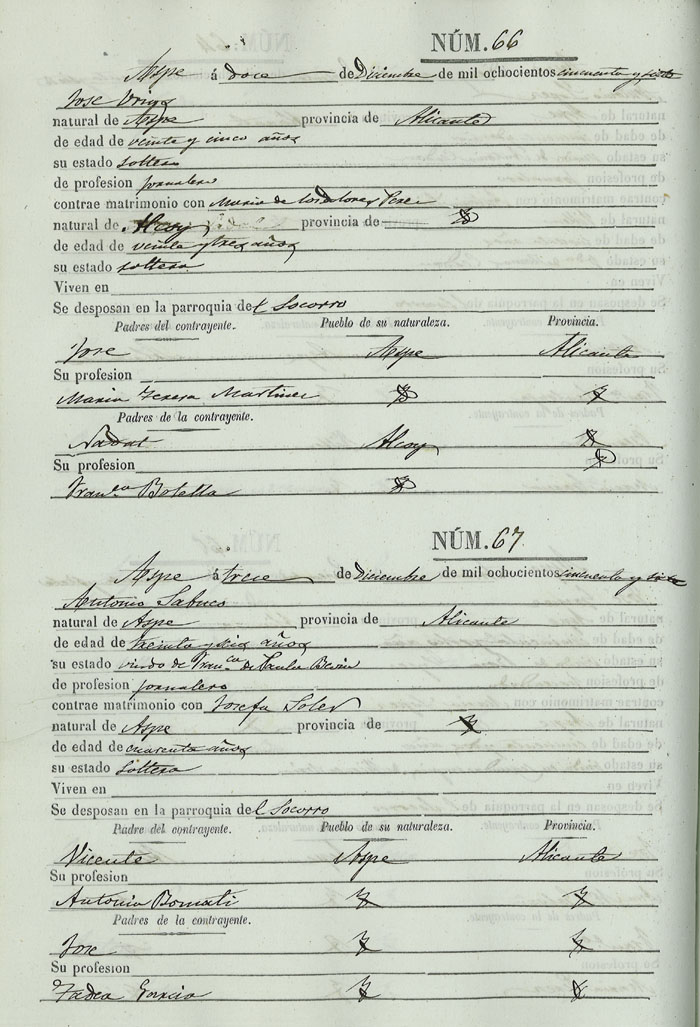 NÚM. 66
Aspe á doce de Diciembre de mil ochocientos cincuenta y siete
Jose
natural de Aspe provincia de Alicante
de edad de veinte y cinco años
su estado soltero
de profesion jornalero
contrae matrimonio con Maria de los Dolores Perez
natural de Alcoy provincia de
de edad de veinte y tres años
su estado soltera
Viven en
Se desposan en la parroquia del Socorro
Padres del contrayente. Pueblo de su naturaleza. Provincia.
Jose Aspe Alicante
Su profesion
Maria Teresa Martinez
Padres de la contrayente.
Alcoy
Su profesion
Fran.ca Botella
NÚM. 67
Aspe á trece de Diciembre de mil ochocientos cincuenta y siete
Antonio Sabuco
natural de Aspe provincia de Alicante
de edad de treinta y seis años
su estado viudo de Fran.ca de Paula
de profesion jornalero
contrae matrimonio con Josefa Soler
natural de Aspe provincia de
de edad de cuarenta años
su estado soltera
Viven en
Se desposan en la parroquia del Socorro
Padre del contrayente. Pueblo de su naturaleza. Provincia.
Vicente Aspe Alicante
Su profesion
Antonia Bomati
Padres de la contrayente.
Jose
Su profesion
Tadea Garcia